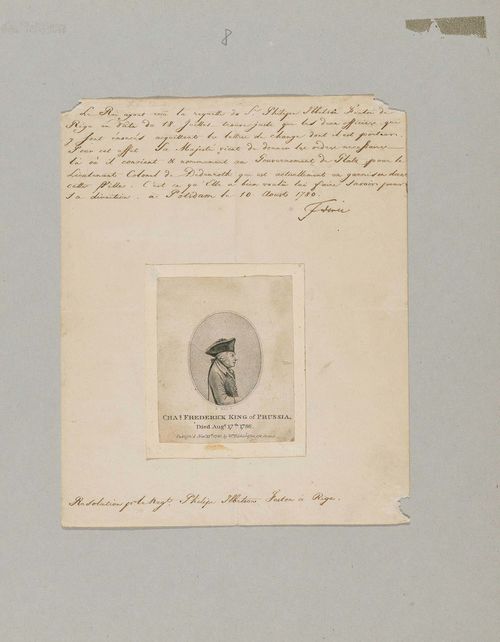 8
Le Roy ayant vû la requête du Sr. Philippe de
Riga en date du 18 Juillet, trouve juste que les deux officiers que
y sont énoncés acquittent les lettres de change dont il est porteur.
Pour cet effet Sa Majesté vient de donner les ordres nécessaires
là où il convient & nommément au Gouvernement de pour le
Lieutenant Colonel de qui est actuellement en garnison dans
cette Ville. C'est ce qu'Elle a bien voulu lui faire savoir pour
sa direction. à Potsdam le 10 Aoust 1780.
CHAs. FREDERICK KING of PRUSSIA,
Died Augt. 17th. 1786.
Publish'd by
Resolution pr. le Negt. Philipe à Riga.